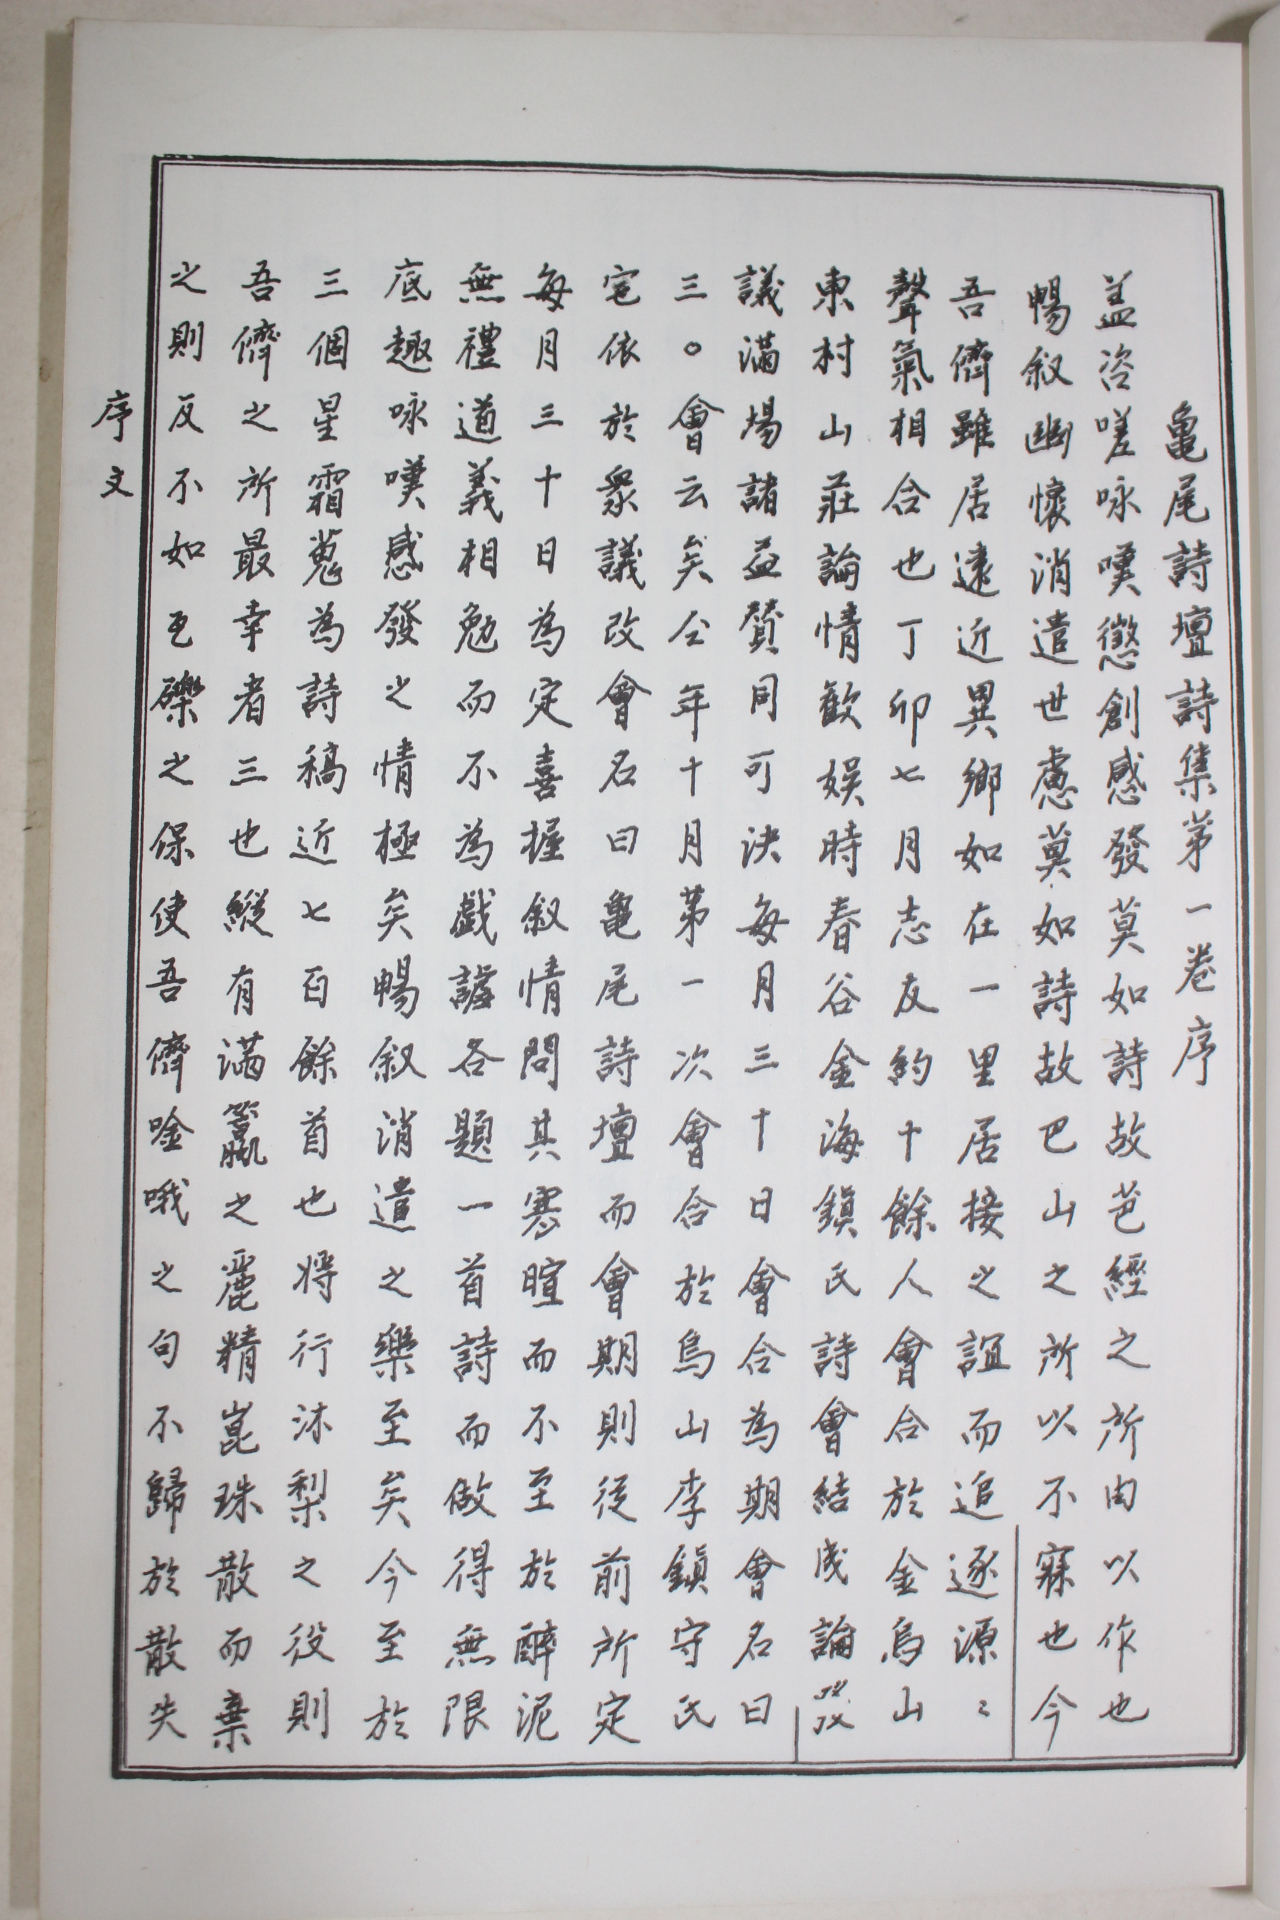 亀尾詩壇詩集第一巻序
盖咨嗟咏嘆懲創感發莫如詩故葩經之所由以作也
暢叙幽懷消遣世慮莫如詩故巴山之所以不寐也今
吾儕雖居遠近異鄉如在一里居接之誼而追逐源〻
聲氣相合也丁卯七月志友約十餘人會合於金烏山
東村山莊論情歡娛時春谷金海鎭氏詩會結成論發
議滿場諸益賛同可決每月三十日會合為期會名曰
三○會云矣仝年十月第一次會合於烏山李鎭守氏
宅依於衆議改會名曰亀尾詩壇而會期則従前所定
每月三十日為定喜握叙情問其寒暄而不至於醉泥
無禮道義相勉而不為戱謔各題一首詩而做得無限
底趣咏嘆感發之情極矣暢叙消遣之樂至矣今至於
三個星霜蒐為詩稿近七百餘首也將行沐梨之役則
吾儕之所最幸者三也縱有滿籯之麗精崑珠散而棄
之則反不如瓦礫之保使吾儕唫哦之句不歸於散失
序文